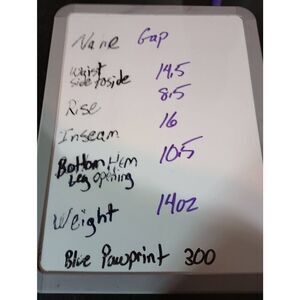 Name Gap
Waist side to side 14.5
Rise 8.5
Inseam 16
Bottom Hem Leg opening 10.5
Weight 14oz
Blue Pawprint 300